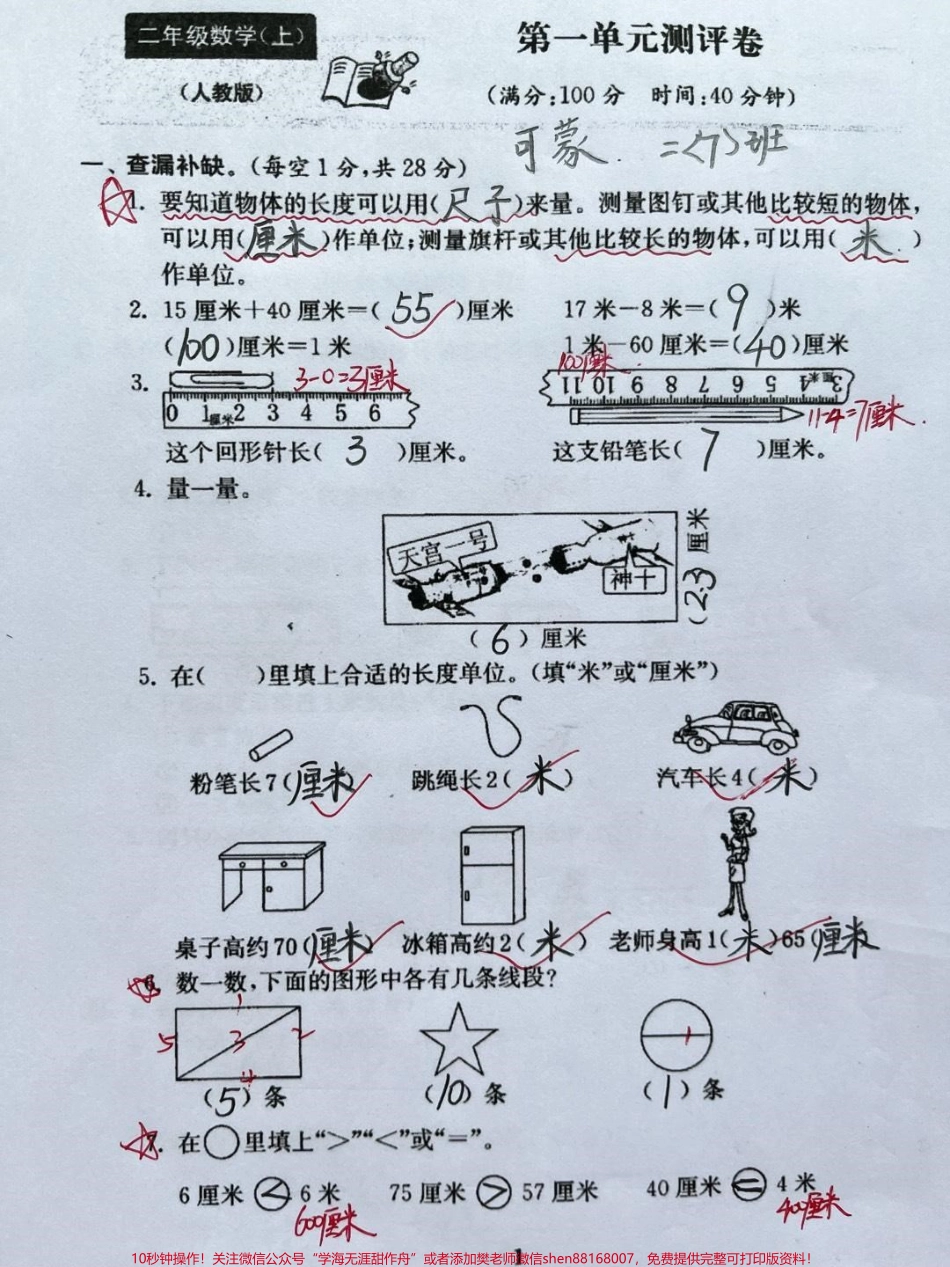 二年级数学(上)
第一单元测评卷
(人教版)
(满分:100分 时间:40分钟)
可蒙. 二<7>班
一、查漏补缺。(每空1分,共28分)
1. 要知道物体的长度可以用(尺子)来量。测量图钉或其他比较短的物体,
可以用(厘米)作单位;测量旗杆或其他比较长的物体,可以用(米)
作单位。
2. 15厘米+40厘米=(55)厘米 17米-8米=(9)米
(100)厘米=1米 1米-60厘米=(40)厘米
100厘米
3. 3-0=3厘米
0 1厘米2 3 4 5 6
11 10 9 8 7 6 5 4厘米3
11-4=7厘米.
这个回形针长(3)厘米。 这支铅笔长(7)厘米。
4. 量一量。
天宫一号
神十
(2.3)厘米
(6)厘米
5. 在( )里填上合适的长度单位。(填“米”或“厘米”)
粉笔长7(厘米) 跳绳长2(米) 汽车长4(米)
桌子高约70(厘米) 冰箱高约2(米) 老师身高1(米)65(厘米)
6. 数一数,下面的图形中各有几条线段?
1
5 3 2 1
4
(5)条 (10)条 (1)条
7. 在○里填上“>”“<”或“=”。
6厘米<6米 75厘米>57厘米 40厘米=4米
600厘米 400厘米
1
10秒钟操作!关注微信公众号“学海无涯甜作舟”或者添加樊老师微信shen88168007,免费提供完整可打印版资料!